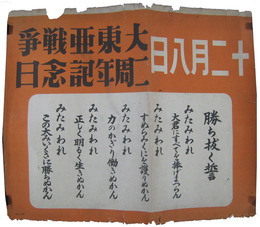 十二月八日
大東亜戦争
二周年記念日
勝ち抜く誓
みたみわれ
大君にすべてを捧げまつらん
みたみわれ
すめらみくにを護りぬかん
みたみわれ
力のかぎり働きぬかん
みたみわれ
正しく明るく生きぬかん
みたみわれ
この大みいくさに勝ちぬかん